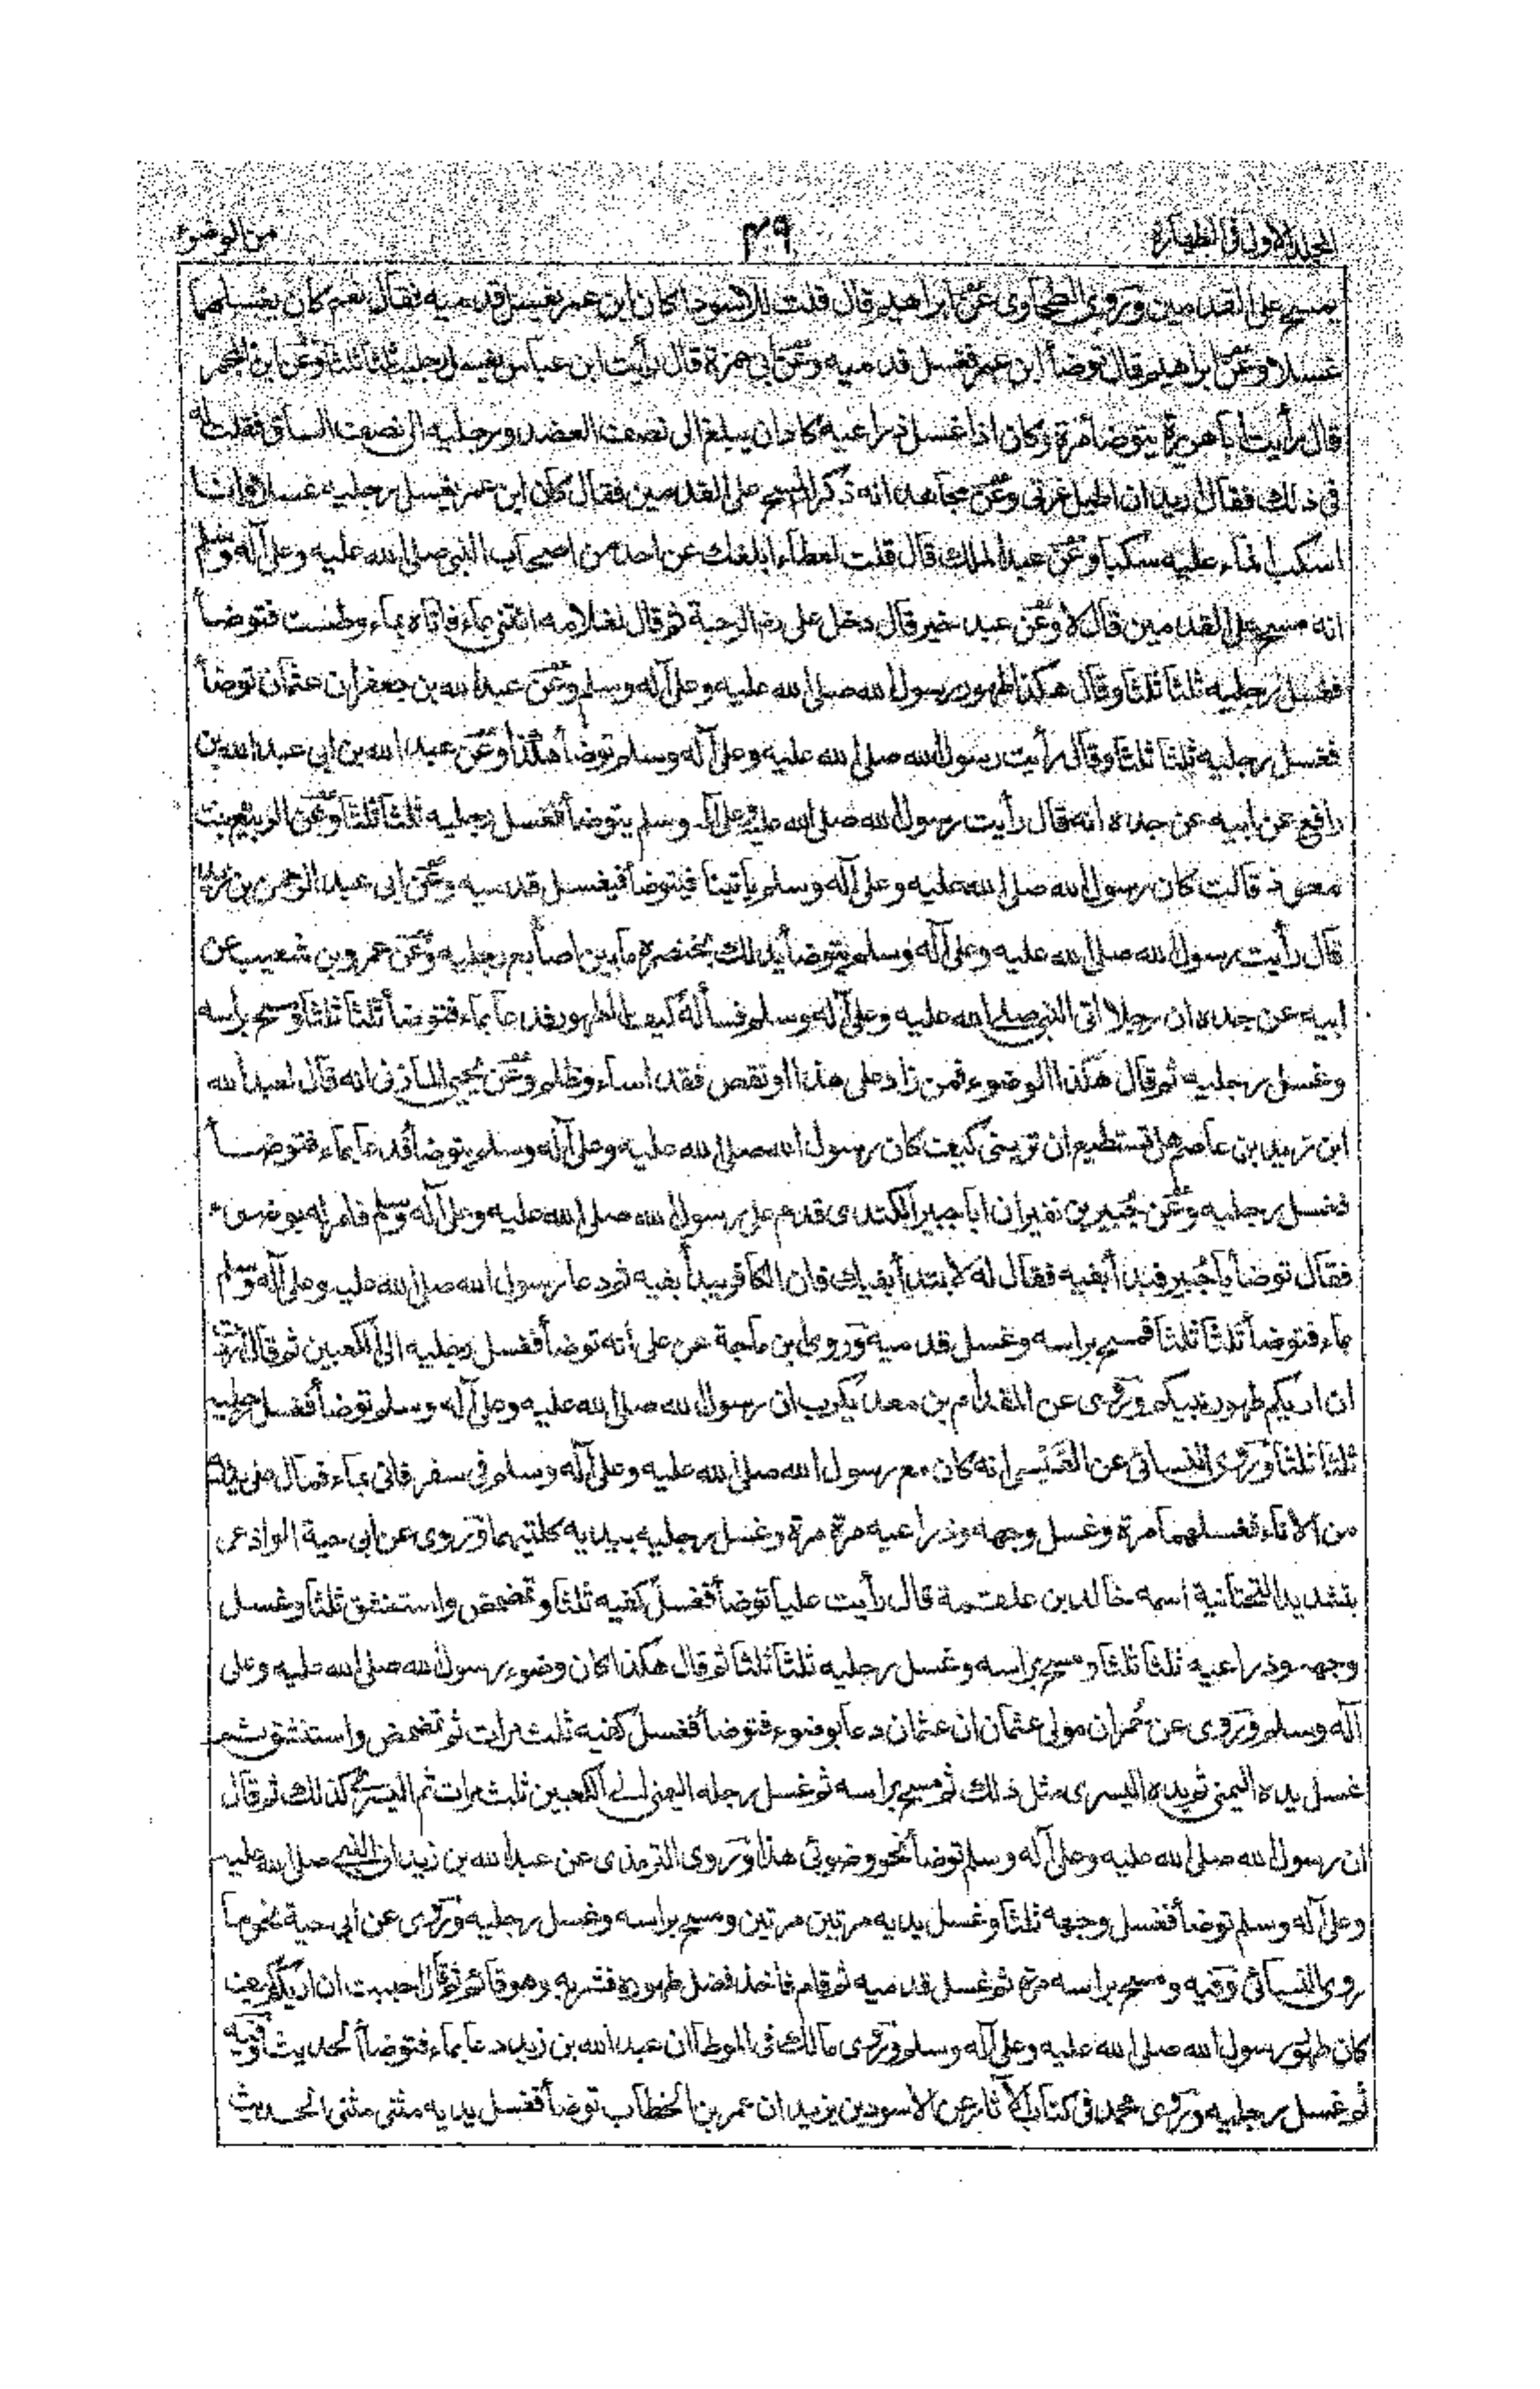 المجلد الاول فى الطهارة ٣٩ من الوضوء
يمسح على القدمين وروى الطحاوى عن ابراهيم قال قلت للاسود اكان ابن عمر يغسل قدميه فقال نعم كان يغسلهما
غسلا وعن ابراهيم قال توضأ ابن عمر فغسل قدميه وعن ابى حمزة قال رأيت ابن عباس يغسل رجليه ثلثا ثلثا وعن ابن المجمر
قال رأيت ابا هريرة يتوضأ مرة وكان اذا غسل ذراعيه كاد ان يبلغ الى نصف العضد ورجليه الى نصف الساق فقلت له
فى ذلك فقال اريد ان اطيل غرتى وعن مجاهد انه ذكر المسح على القدمين فقال كان ابن عمر يغسل رجليه غسلا وانا
اسكب الماء عليه سكبا وعن عبد الملك قال قلت لعطاء ابلغك عن احد من اصحاب النبى صلى الله عليه وعلى آله وسلم
انه مسح على القدمين قال لا وعن عبد خير قال دخل على رض الرحبة ثم قال لغلامه ائتنى بماء فاتاه بماء وطست فتوضأ
فغسل رجليه ثلثا ثلثا وقال هكذا طهور رسول الله صلى الله عليه وعلى آله وسلم وعن عبد الله بن جعفر ان عثمان توضأ
فغسل رجليه ثلثا ثلثا وقال رأيت رسول الله صلى الله عليه وعلى آله وسلم توضأ هكذا وعن عبد الله بن ابى عبد الله بن
رافع عن ابيه عن جده انه قال رأيت رسول الله صلى الله عليه وعلى آله وسلم يتوضأ فغسل رجليه ثلثا ثلثا وعن الربيع بنت
معوذ قالت كان رسول الله صلى الله عليه وعلى آله وسلم يأتينا فيتوضأ فيغسل قدميه وعن ابى عبد الرحمن بن يزيد
قال رأيت رسول الله صلى الله عليه وعلى آله وسلم يتوضأ يدلك بخنصره ما بين اصابع رجليه وعن عمرو بن شعيب عن
ابيه عن جده ان رجلا اتى النبى صلى الله عليه وعلى آله وسلم فسأله كيف الطهور فدعا بماء فتوضأ ثلثا ثلثا ومسح براسه
وغسل رجليه ثم قال هكذا الوضوء فمن زاد على هذا او نقص فقد اساء وظلم وعن يحيى المازنى انه قال لعبد الله
ابن زيد بن عاصم هل تستطيع ان ترينى كيف كان رسول الله صلى الله عليه وعلى آله وسلم يتوضأ فدعا بماء فتوضأ
فغسل رجليه وعن جبير بن نفير ان ابا جبير الكندى قدم على رسول الله صلى الله عليه وعلى آله وسلم فامر له بوضوء
فقال توضأ يا جبير فبدأ بفيه فقال له لا تبتدأ بفيك فان الكافر يبدأ بفيه ثم دعا رسول الله صلى الله عليه وعلى آله وسلم
بماء فتوضأ ثلثا ثلثا فمسح براسه وغسل قدميه وروى ابن ماجة عن على انه توضأ فغسل رجليه الى الكعبين ثم قال اردت
ان اريكم طهور نبيكم وروى عن المقدام بن معديكرب ان رسول الله صلى الله عليه وعلى آله وسلم توضأ فغسل رجليه
ثلثا ثلثا وروى النسائى عن القيسى انه كان مع رسول الله صلى الله عليه وعلى آله وسلم فى سفر فاتى بماء فقال على يديه
من الاناء فغسلهما مرة وغسل وجهه وذراعيه مرة مرة وغسل رجليه بيديه كلتيهما وروى عن ابى حية الوادعى
بتشديد التحتانية اسمه خالد بن علقمة قال رأيت عليا توضأ فغسل كفيه ثلثا وتمضمض واستنشق ثلثا وغسل
وجهه وذراعيه ثلثا ثلثا ومسح براسه وغسل رجليه ثلثا ثلثا ثم قال هكذا كان وضوء رسول الله صلى الله عليه وعلى
آله وسلم وروى عن حمران مولى عثمان ان عثمان دعا بوضوء فتوضأ فغسل كفيه ثلث مرات ثم تمضمض واستنشق ثم
غسل يده اليمنى ثم يده اليسرى مثل ذلك ثم مسح براسه ثم غسل رجله اليمنى الى الكعبين ثلث مرات ثم اليسرى كذلك ثم قال
ان رسول الله صلى الله عليه وعلى آله وسلم توضأ نحو وضوئى هذا وروى الترمذى عن عبد الله بن زيد ان النبى صلى الله عليه
وعلى آله وسلم توضأ فغسل وجهه ثلثا وغسل يديه مرتين مرتين ومسح براسه وغسل رجليه وروى عن ابى حية نحو ما
روى النسائى وفيه ومسح براسه مرة ثم غسل قدميه ثم قام فاخذ فضل طهوره فشربه وهو قائم ثم قال احببت ان اريكم كيف
كان طهور رسول الله صلى الله عليه وعلى آله وسلم وروى مالك فى الموطأ ان عبد الله بن زيد دعا بماء فتوضأ الحديث وفيه
ثم غسل رجليه وروى محمد فى كتاب الآثار عن الاسود بن يزيد ان عمر بن الخطاب توضأ فغسل يديه مثنى مثنى الحديث